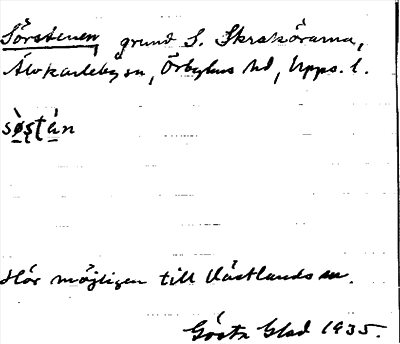 Sörstenen, grund S. Skraskärarna,
Älvkarleby sn, Örbyhus hd, Upps. l.
sø̀ʂʈán
Hör möjligen till Västlands sn.
Gösta Glad 1935.